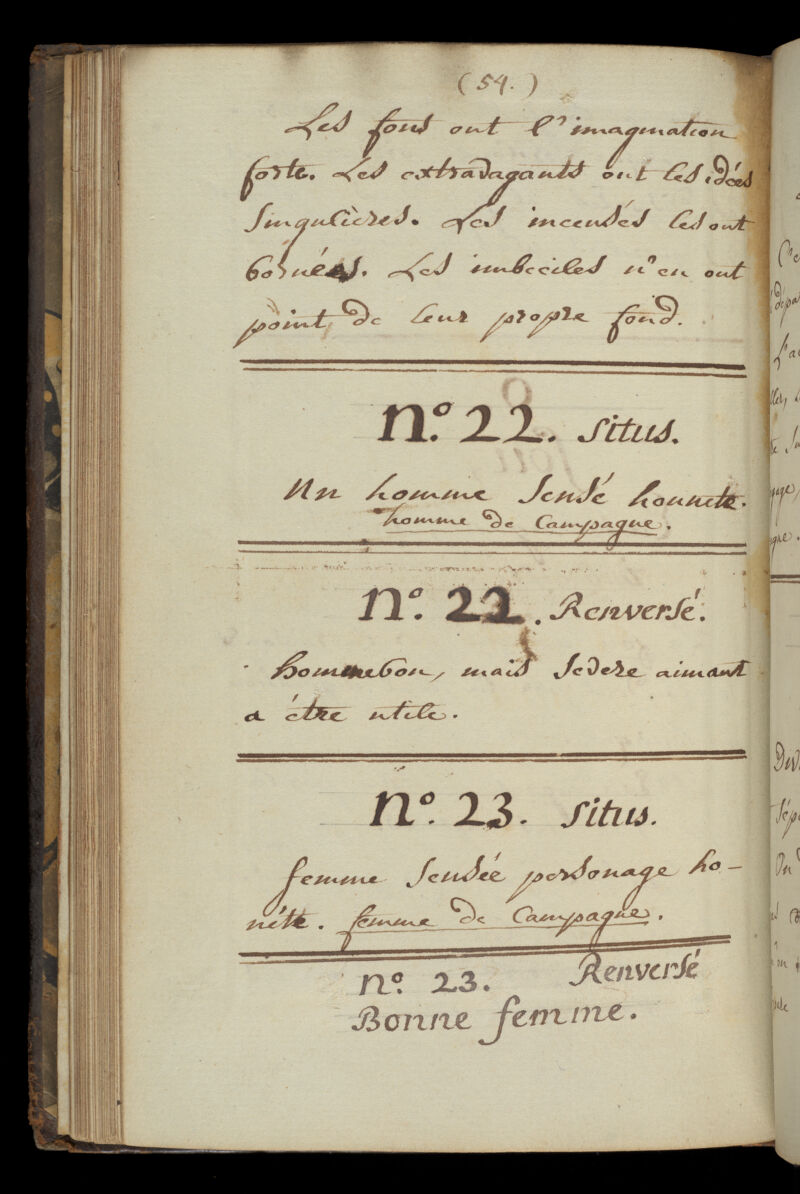 (54.)
Les fous ont l'imagination
forte. Les extravagants ont les idées
singulières. Les incensés les ont
bornées. Les imbeciles n'en ont
point de leur propre fond.
N.º 22. Situs.
Un homme sensé honnete.
homme de Campagne.
N.º 22. Renversé.
homme bon, mais severe aimant
a étre utile.
N.º 23. Situs.
femme sensée personage ho-
néte. femme de Campagne.
N.º 23. Renversé
Bonne femme.